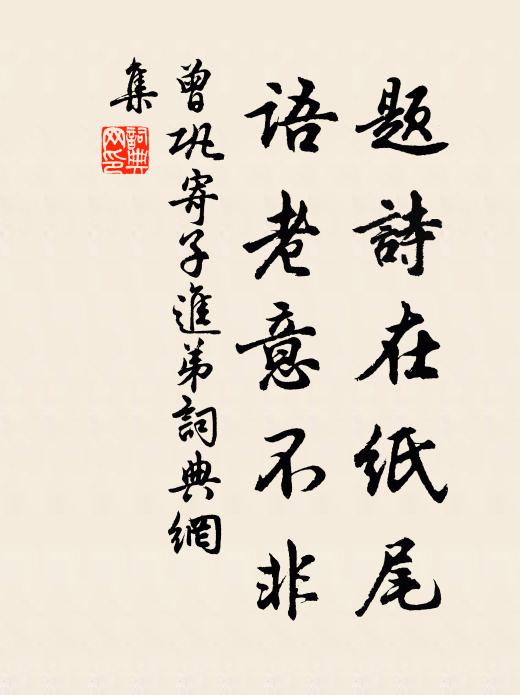 題詩在紙尾
語老意不非
曾鞏寄子進弟詞典網
集
詞典
网印